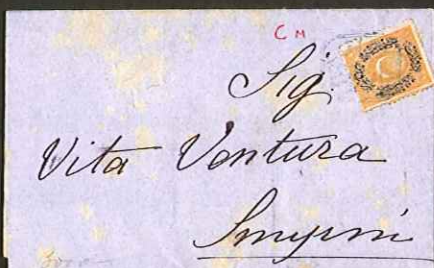 C M
Sig.
Vita Ventura
Smyrni